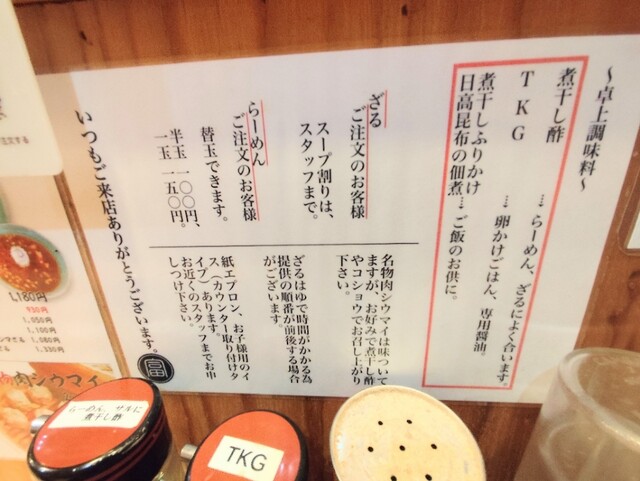 〜卓上調味料〜
煮干し酢 …→ らーめん、ざるによく合います。
TKG …→ 卵かけごはん、専用醤油。
煮干しふりかけ
日高昆布の佃煮…→ ご飯のお供に。
ざる
ご注文のお客様
スープ割りは、
スタッフまで。
らーめん
ご注文のお客様
替玉できます。
半玉 一〇〇円、
一玉 一五〇円。
名物肉シウマイは味ついて
ますが、お好みで煮干し酢
やコショウでお召し上がり
下さい。
ざるはゆで時間がかかる為
提供の順番が前後する場合
がございます。
紙エプロン、お子様用のイ
ス(カウンター取り付けタ
イプ)あります。
お近くのスタッフまでお申
しつけ下さい。
いつもご来店ありがとうございます。
冨
1,180円
930円
1,050円
1,100円
1,080円
1,330円
物肉シウマイ
らーめん、ザルに
煮干し酢
TKG